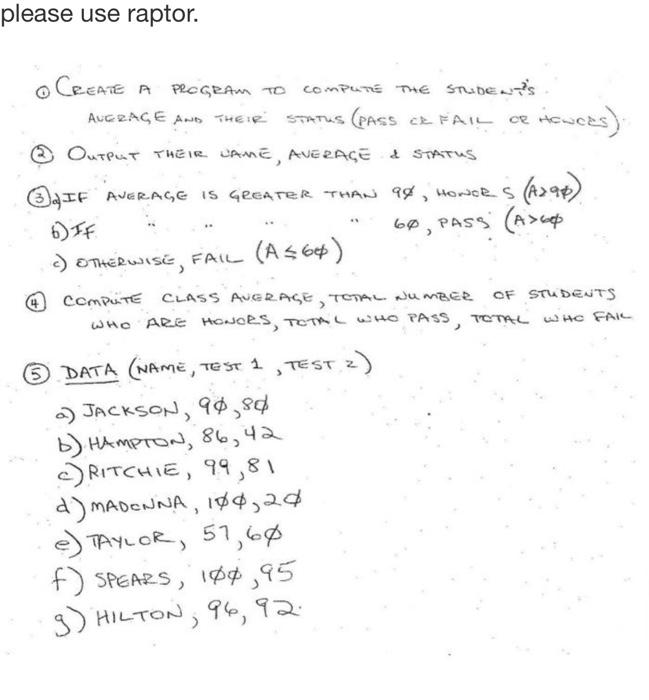 please use raptor.
① CREATE A PROGRAM TO COMPUTE THE STUDENT'S
AVERAGE AND THEIR STATUS (PASS OR FAIL OR HONORS)
② OUTPUT THEIR NAME, AVERAGE & STATUS
③ a) IF AVERAGE IS GREATER THAN 90, HONORS (A>90)
b) IF " " " " 60, PASS (A>60
c) OTHERWISE, FAIL (A≤60)
④ COMPUTE CLASS AVERAGE, TOTAL NUMBER OF STUDENTS
WHO ARE HONORS, TOTAL WHO PASS, TOTAL WHO FAIL
⑤ DATA (NAME, TEST 1, TEST 2)
a) JACKSON, 90, 80
b) HAMPTON, 86, 42
c) RITCHIE, 99, 81
d) MADONNA, 100, 20
e) TAYLOR, 57, 60
f) SPEARS, 100, 95
g) HILTON, 96, 92